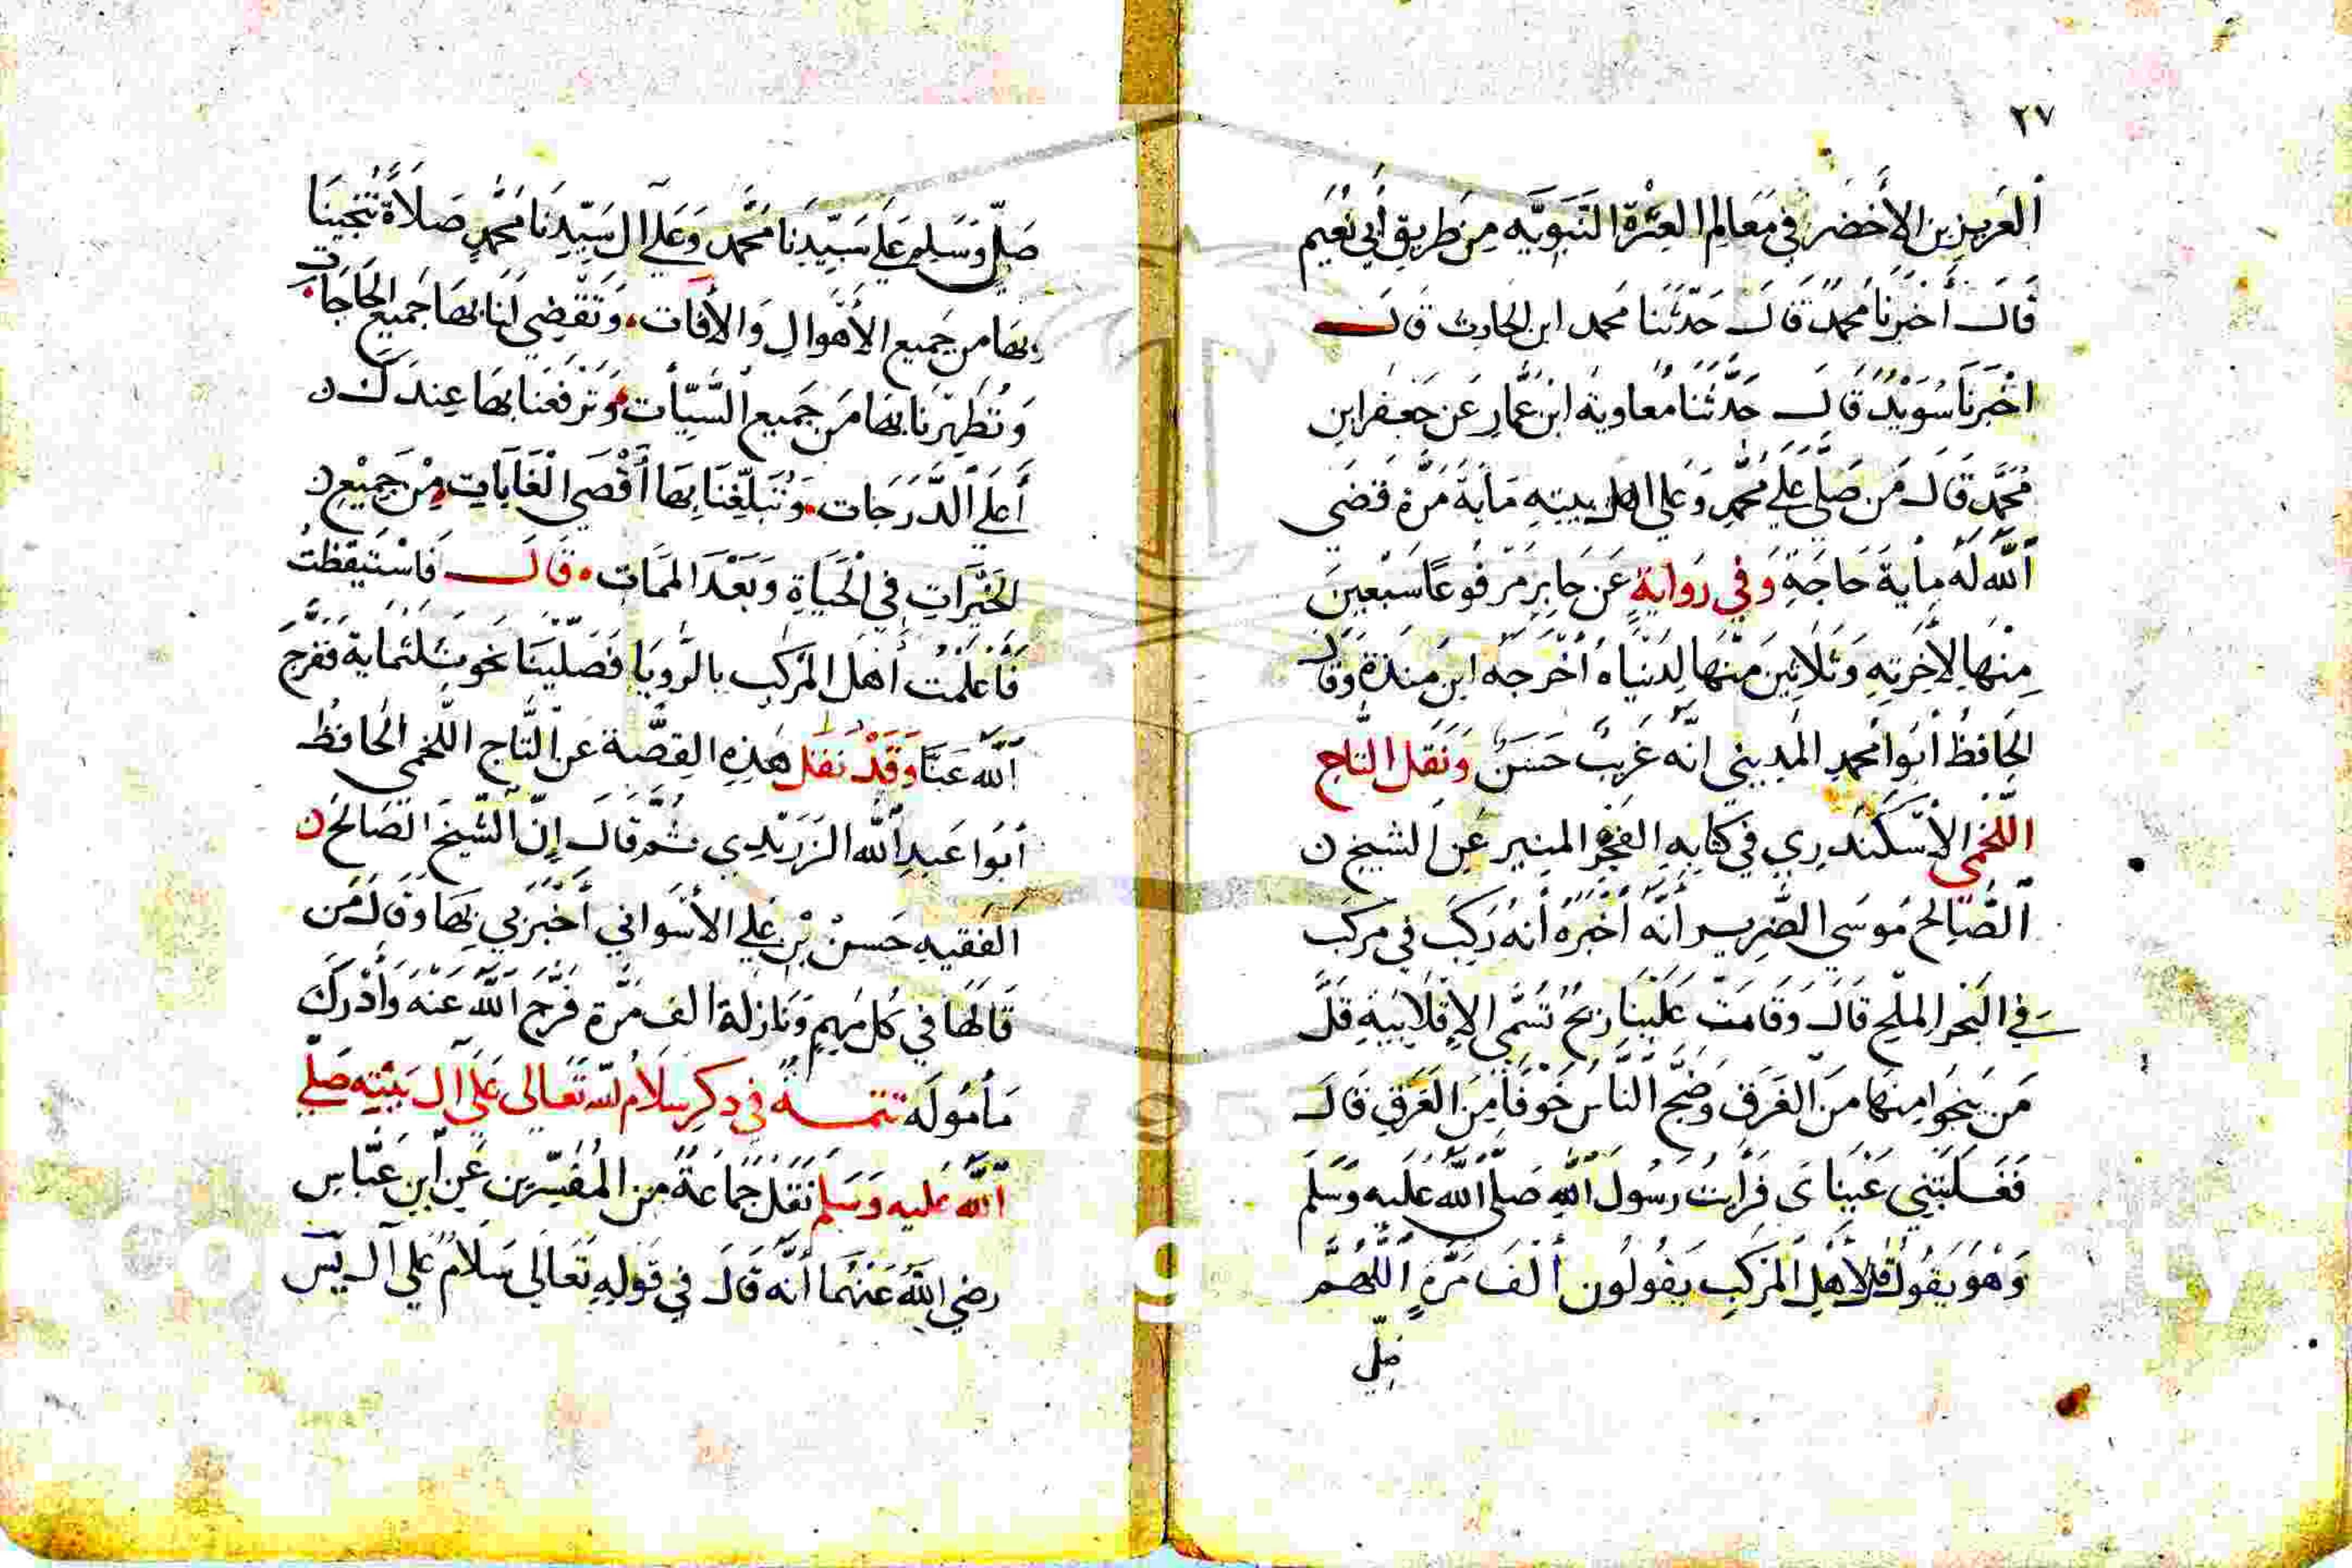 ٢٧
ٱلعَزيز بن الأَخضَر في مَعَالِم العِتْرة النَّبَويَّه مِن طَريق أَبي نُعَيم
قَالَ أَخبَرنَا مُحمدٌ قَالَ حَدّثَنا مَحمد ابن الحارث قالَ
اخْبَرنَا سُوَيْدٌ قَالَ حَدَّثَنا مُعَاوية ابن عَمَّارٍ عَن جَعفر ابن
مُحمَّدٍ قَالَ مَن صَلَّي عَلي مُحَمَّدٍ وَعَلي اهل بيته مَايَة مَرَّة قَضَى
ٱللَّه لَه مِاية حَاجَةٍ وَفي رَوايةٍ عَن جَابِرٍ مَرفُوعًا سَبْعينَ
مِنْهَا لِأَخِرَتِهِ وَثَلَاثِينَ مَنْهَا لِدُنْيَاهُ أخْرَجَه ابن مَندَة وَقَال
الحَافِظُ أبُوا مُحمدٍ المَدِيني انَّه غَريبٌ حَسَنٌ وَنَقَل التَّاج
اللَّخمي الأسْكَندَري في كتَابِهِ الفَجْرِ المنِير عَنِ الشيخ ن
ٱلصَّالح مُوسَي الضَّرِير أنَّه أخْبَرَهُ أنهُ رَكِبَ في مَركب
في البَحْر المَلْح قَالَ وَقَامَتْ عَلَيْنَا رِيحٌ تُسَمَّي الإِقْلَابِيَةِ قَلَّ
مَن يَنجُوا مِنهَا مَنَ الغَرَق وَضَجَّ النَّاسُ خَوْفًا مِنَ الغَرَقِ قَالَ
فَغَلَبَتني عَيْنَاىَ فَرَأيتُ رَسُولَ ٱللَّهِ صَلَّى اللَّهُ عَلَيه وَسَلَّمَ
وَهْوَ يَقُولُ قُل لأَهْلِ المَرْكِبِ يَقُولُون أَلفَ مَرَّةٍ ٱللَّهُمَّ
صَلّي
صَلّ وَسَلِم عَلَي سَيِّدِنَا مُحَّمد وَعَلَي آل سَيِّدِنَا مُحَّمدٍ صَلاَةً تُنْجِينَا
بِهَا مِن جَميع الأَهْوالِ وَالأفَات وَتَقْضِي لَنَا بهَا جَميع الحَاجَات
وَتُطَهِّرنَا بهَا مَن جَميع السَّيّأت وَتَرفَعَنَا بهَا عِندَكَ ن
أَعلَي ٱلدَّرَجَات وَتُبَلِّغنَا بِهَا أَقْصَي الْغَايَاتِ مِنْ جَمِيْعِ ن
الخَيْرَاتِ في الْحَيَاةِ وَبَعْدَ المَمَات قَالَ فَاسْتَيْقَظتُ
فَأَعْلَمْتُ أَهْلَ المَركب بالرُّويَا فَصَلَّيْنَا نَحو ثلثماية فَفَرَّجَ
ٱللَّه عَنَّا وَقَدْ نَقَلَ هَذِهِ القِصَّة عَنْ التَّاج اللَّخمي الحافظُ
أبُوا عَبدِ ٱللَّه الزَرَنْدِي ثُمَّ قَالَ إِنَّ الشَّيخَ الصَالحَ ن
ٱلفَقيه حَسن بْن عَلي الأسْوَاني أخْبَرَني بِهَا وَقَالَ مَن
قَالَهَا في كُل مُهِمٍ وَنَازِلَة الفَ مَرَّة فَرَّج ٱللَّهُ عَنْهُ وَأدْرَكَ
مَأمُولَه تتمـة في ذكر سَلَامُ للَّه تَعَالى عَلَى آل بَيْتِه صَلَّي
ٱللَّه عَلَيه وَسَلَّم نَقَلَ جَمَاعَةٌ مِن المُفَسّرين عَنِ ابنِ عَبَّاس
رضي اللَّهُ عَنْهُما أَنَّه قَالَ في قَولِهِ تَعَالَي سَلَامٌ عَلي آلِ يٰسَ